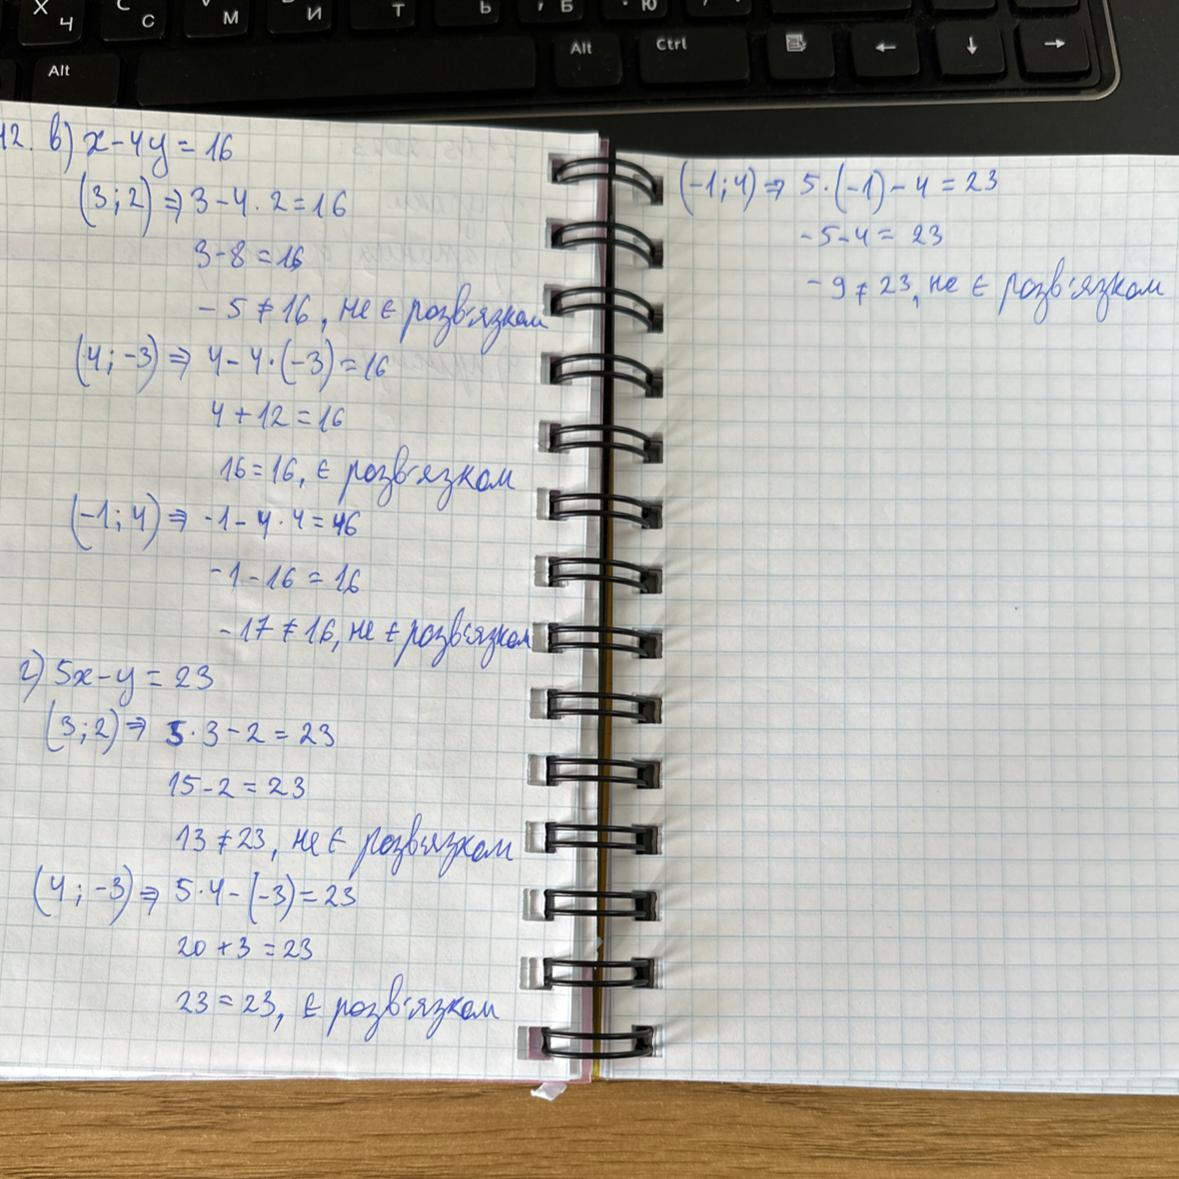 Х Ч С М И Т Ь , Б . Ю
Alt Alt Ctrl
12. в) x-4y=16
(3;2) ⇒ 3-4·2=16
3-8=16
-5≠16, не є розв'язком
(4;-3) ⇒ 4-4·(-3)=16
4+12=16
16=16, є розв'язком
(-1;4) ⇒ -1-4·4=16
-1-16=16
-17≠16, не є розв'язком
г) 5x-y=23
(3;2) ⇒ 5·3-2=23
15-2=23
13≠23, не є розв'язком
(4;-3) ⇒ 5·4-(-3)=23
20+3=23
23=23, є розв'язком
(-1;4) ⇒ 5·(-1)-4=23
-5-4=23
-9≠23, не є розв'язком